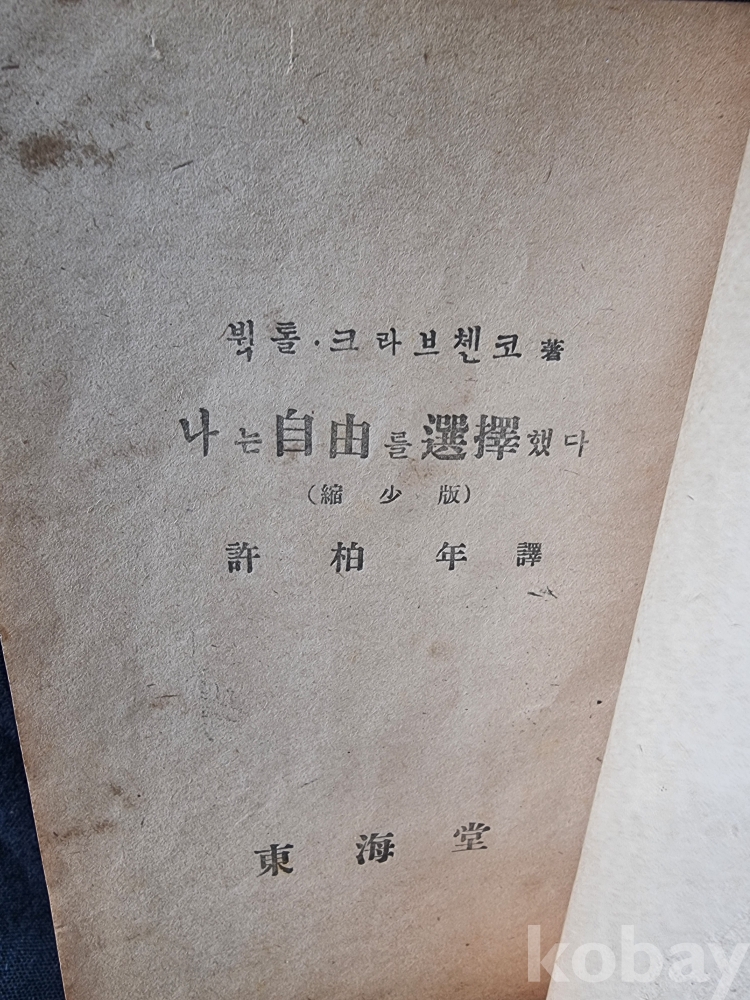 뷕톨·크라브첸코 著
나는 自由를 選擇했다
(縮少版)
許柏年 譯
東海堂
kobay